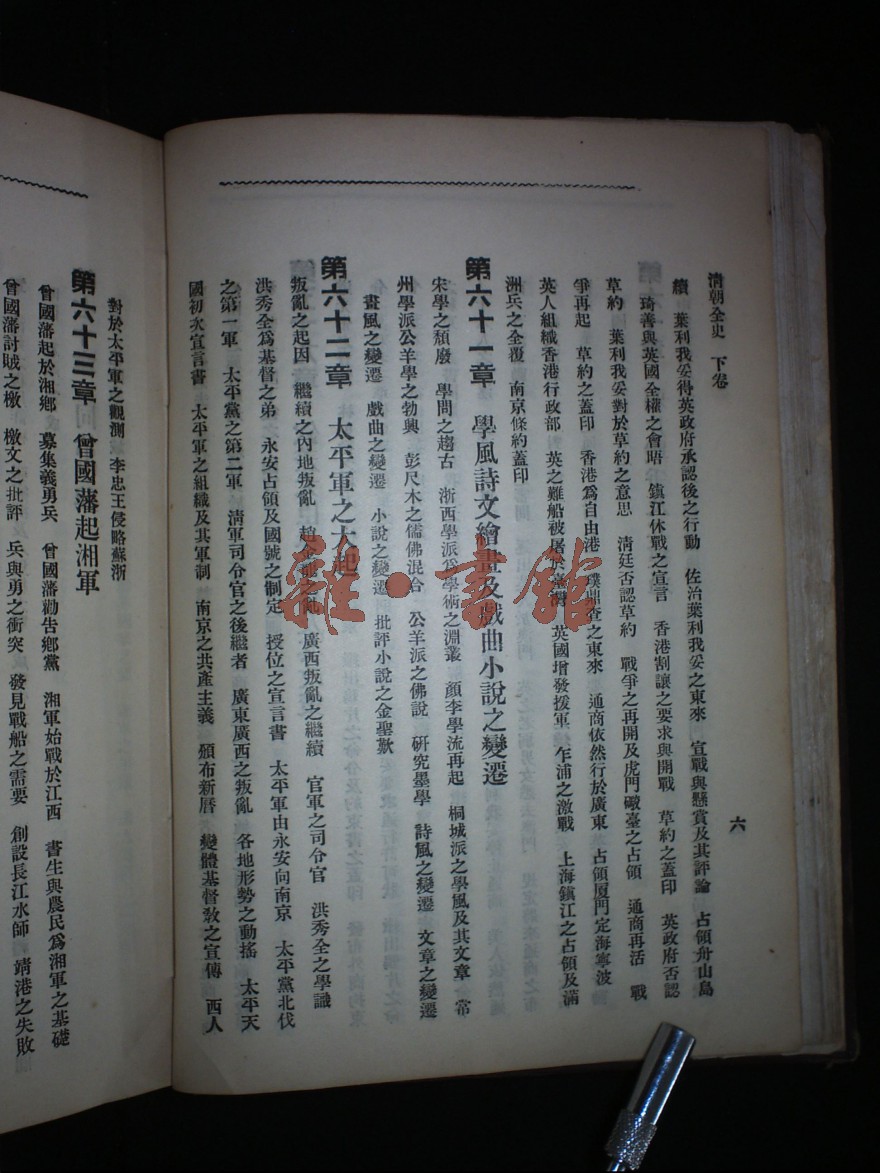 清朝全史 下卷
六
續 葉利我妥得英政府承認後之行動 佐治葉利我妥之東來 宣戰與懸賞及其評論 占領舟山島
琦善與英國全權之會晤 鎮江休戰之宣言 香港割讓之要求與開戰 草約之蓋印 英政府否認
草約 葉利我妥對於草約之意思 清廷否認草約 戰爭之再開及虎門礮臺之占領 通商再活 戰
爭再起 草約之蓋印 香港爲自由港 璞鼎查之東來 通商依然行於廣東 占領厦門定海寧波
英人組織香港行政部 英之難船被屠於臺灣 英國增發援軍 乍浦之激戰 上海鎮江之占領及滿
洲兵之全覆 南京條約蓋印
第六十一章 學風詩文繪畫及戲曲小說之變遷
宋學之頹廢 學問之趨古 浙西學派爲學術之淵叢 顏李學流再起 桐城派之學風及其文章 常
州學派公羊學之勃興 彭尺木之儒佛混合 公羊派之佛說 研究墨學 詩風之變遷 文章之變遷
畫風之變遷 戲曲之變遷 小說之變遷 批評小說之金聖歎
第六十二章 太平軍之大起
叛亂之起因 繼續之內地叛亂 趙金龍之亂 廣西叛亂之繼續 官軍之司令官 洪秀全之學識
洪秀全爲基督之弟 永安占領及國號之制定 授位之宣言書 太平軍由永安向南京 太平黨北伐
之第一軍 太平黨之第二軍 清軍司令官之後繼者 廣東廣西之叛亂 各地形勢之動搖 太平天
國初次宣言書 太平軍之組織及其軍制 南京之共產主義 頒布新曆 變體基督敎之宣傳 西人
對於太平軍之觀測 李忠王侵略蘇浙
第六十三章 曾國藩起湘軍
曾國藩起於湘鄉 募集義勇兵 曾國藩勸告鄉黨 湘軍始戰於江西 書生與農民爲湘軍之基礎
曾國藩討賊之檄 檄文之批評 兵與勇之衝突 發見戰船之需要 創設長江水師 靖港之失敗
雜·書館